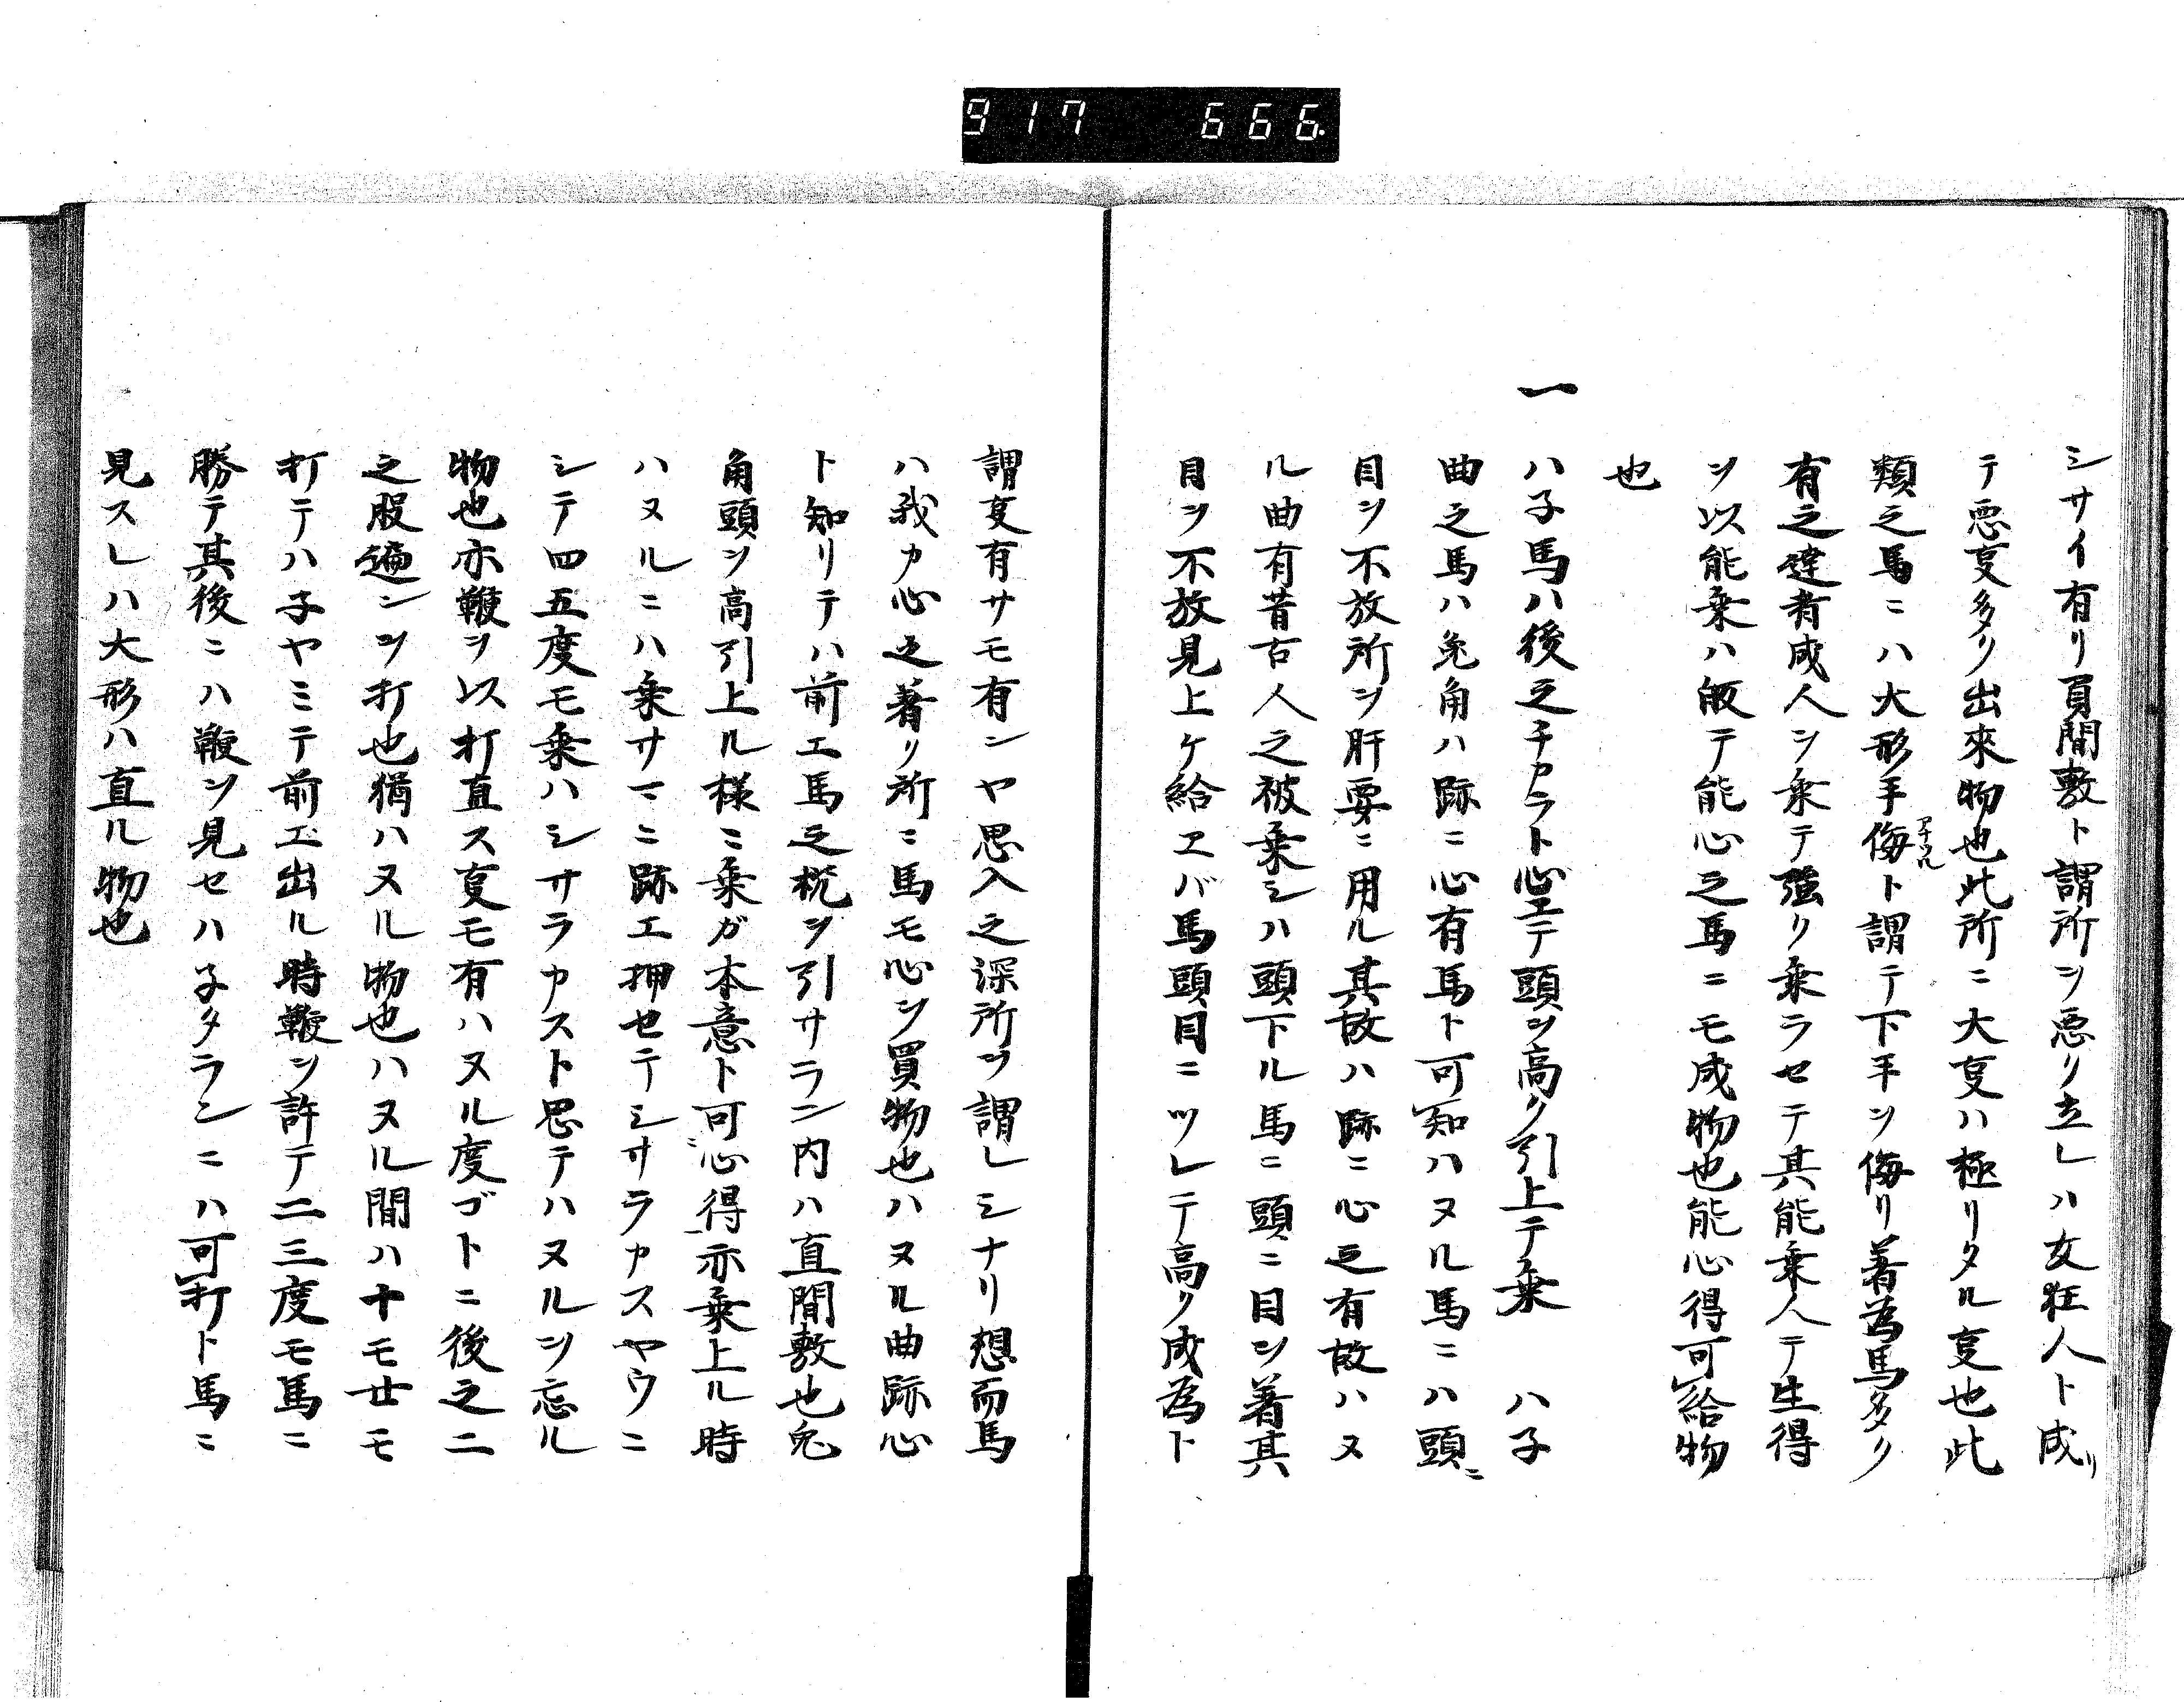 917 666.
シサイ有リ負間敷ト謂所ヲ悪リ立レハ女狂人ト成リ
テ悪叓多ク出來物也此所ニ大叓ハ極リタル叓也此
類之馬ニハ大形手侮ト謂テ下手ヲ侮リ着為馬多ク
アナツル
有之達者成人ヲ乗テ強ク乗ラセテ其能乗人テ生得
ヲ以能乗ハ皈テ能心之馬ニモ成物也能心得可給物
也
一 ハ子馬ハ後之チカラト心エテ頭ヲ高ク引上テ乗 ハ子
曲之馬ハ兎角ハ跡ニ心有馬ト可知ハヌル馬ニハ頭ニ
目ヲ不放所ヲ肝要ニ用ル其故ハ跡ニ心之有故ハヌ
ル曲有昔古人之被乗シハ頭下ル馬ニ頭ニ目ヲ着其
目ヲ不放見上ケ給ヱバ馬頭目ニツレテ高ク成為ト
謂叓有サモ有ンヤ思入之深所ヲ謂レシナリ想而馬
ハ我カ心之着リ所ニ馬モ心ヲ買物也ハヌル曲跡心
ト知リテハ前エ馬之梲ヲ引サラン内ハ直間敷也兎
角頭ヲ高引上ル様ニ乗ガ本意ト可心得亦乗上ル時
ハヌルニハ乗サマニ跡エ押セテシサラカスヤウニ
シテ四五度モ乗ハシサラカスト思テハヌルヲ忘ル
物也亦鞭ヲ以打直ス叓モ有ハヌル度ゴトニ後之二
之股遍ンヲ打也猶ハヌル物也ハヌル間ハ十モ廿モ
打テハ子ヤミテ前エ出ル時鞭ヲ許テ二三度モ馬ニ
勝テ其後ニハ鞭ヲ見セハ子タラシニハ可打ト馬ニ
見スレハ大形ハ直ル物也